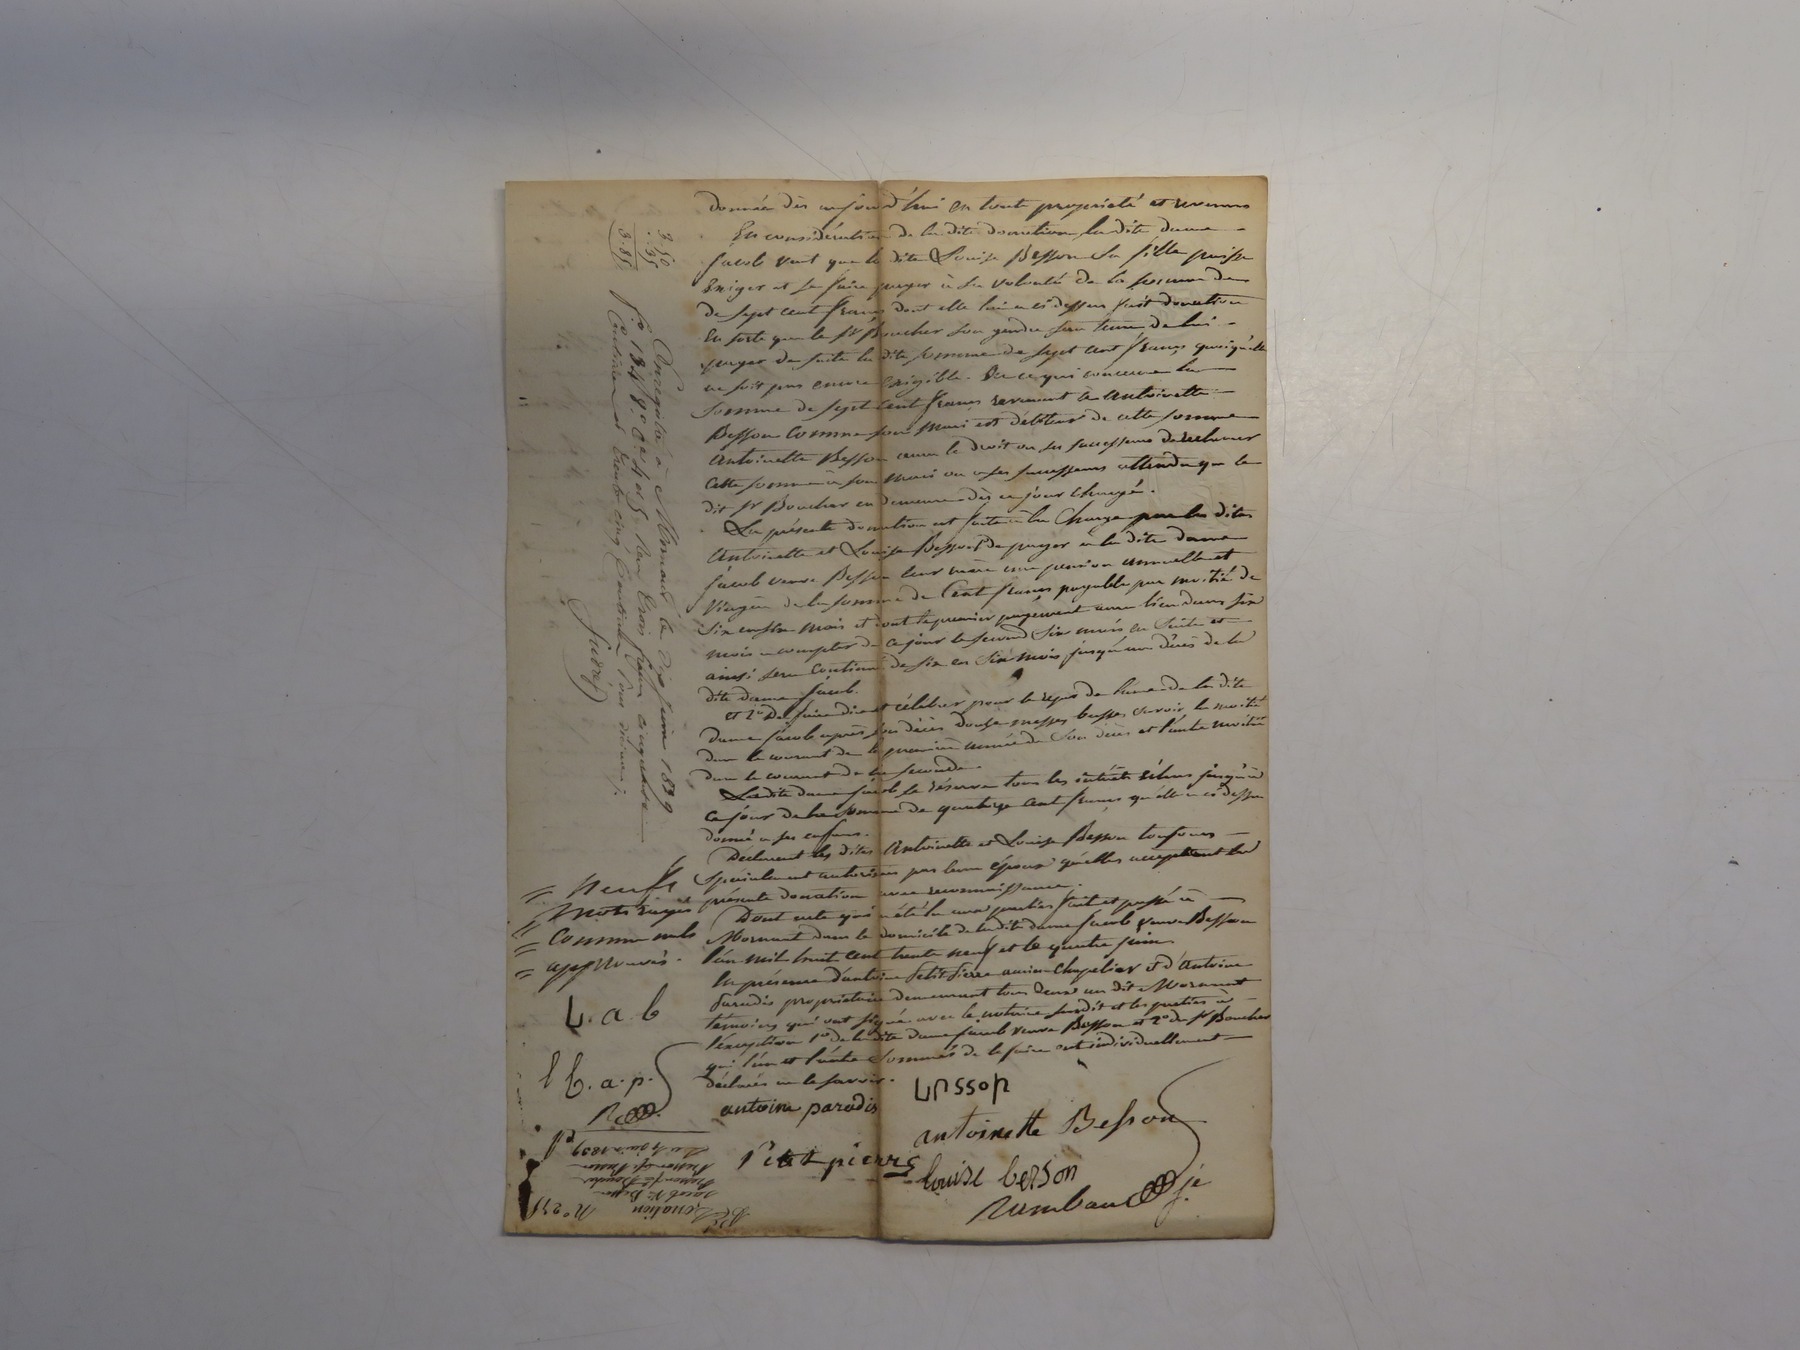 donnée dès aujourd'hui en toute propriété et revenus
En considération de la dite donation, la dite dame
Jacob veut que la dite Louise Besson sa fille puisse
Exiger et se faire payer à sa volonté de la somme de
de sept cent francs dont elle lui a ci dessus fait donation
En sorte que le Sr Boucher son gendre sera tenu de lui
payer de suite la dite somme de sept cent francs quoiqu'elle
ne soit pas encore exigible. En ce qui concerne la
somme de sept cent francs revenant à Antoinette
Besson comme son mari est débiteur de cette somme
Antoinette Besson aura le droit ou ses successeurs de réclamer
cette somme à son mari ou à ses successeurs attendu que le
dit Sr Boucher en demeure dès ce jour chargé.
La présente donation est faite à la charge par les dites
Antoinette et Louise Besson de payer à la dite dame
Jacob veuve Besson leur mère une pension annuelle et
viagère de la somme de Cent francs payable par moitié de
six en six mois et dont le premier payement aura lieu dans six
mois à compter de ce jour le second six mois en suite et
ainsi sera continué de six en six mois jusqu'au décès de la
dite dame Jacob.
et 2º De faire dire et célébrer pour le repos de l'âme de la dite
dame Jacob après son décès douze messes basses savoir la moitié
dans le courant de la première année de son décès et l'autre moitié
dans le courant de la seconde.
La dite dame Jacob se réserve tous les intérêts échus jusqu'à
ce jour de la somme de quatorze cent francs qu'elle a ci dessus
donné à ses enfans.
Déclarent les dites Antoinette et Louise Besson toujours
spécialement autorisées par leurs époux qu'elles acceptent la
présente donation avec reconnaissance.
Dont acte qui a été lu aux parties fait et passé à
Mornant dans le domicile de la dite dame Jacob veuve Besson
l'an mil huit cent trente neuf et le quatre juin
En présence d'antoine Petit Pierre ancien chapelier et d'Antoine
Paradis propriétaire demeurant tous deux au dit Mornant
témoins qui ont signé avec le notaire susdit et les parties à
l'exception 1º de la dite dame Jacob veuve Besson et 2º du Sr Boucher
qui l'un et l'autre sommés de le faire ont individuellement
déclaré ne le savoir.
antoine paradis
antoinette Besson
Petit pierre
louise berson
3.50
.35
3.85
Enregistré à Mornant le dix juin 1839
fo 134 Vo Ce 4 et 5 Reçu trois francs cinquante
Centimes et trente cinq Centimes pour décime.
neuf
mots rayés
comme nuls
approuvés.
L. a b
l b. a. p.
Nº 231
Donation
Jacob Ve Besson
Du 4 Juin 1839